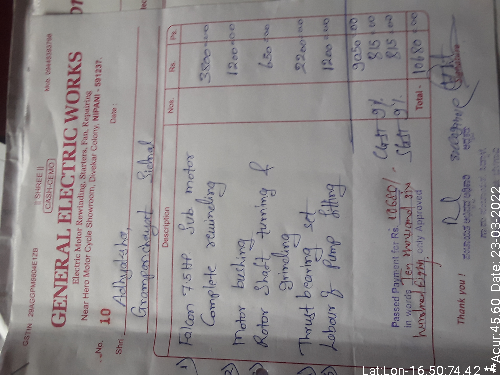 || SHREE ||
CASH-CEMO
Mob. 09448363798
GSTIN 29AGGPM8904E1ZB
GENERAL ELECTRIC WORKS
Electric Motor Rewinding, Starters, Fan, Repairing
Near Hero Motor Cycle Showroom, Divekar Colony, NIPANI - 591237.
No. 10 Date :
Shri Adhyaksha,
Gramapanchayat Sidnal
Description Nos. Rs. Ps.
1) Falcon 7.5HP Sub motor
Complete rewinding 3800=00
Motor bushing 1200=00
Rotor Shaft turning & 650=00
grinding
Thrust bearing set 2200=00
Labour & Pump fitting 1200=00
9050=00
CGST 9% 815=00
SGST 9% 815=00
Total- 10680=00
Passed Payment for Rs. 10680/-
In words Ten thousand six
hundred eighty only Approved
Thank you !
Signature
Lat:Lon-16.50:74.42
Acur:45.60 Date: 23-03-2022